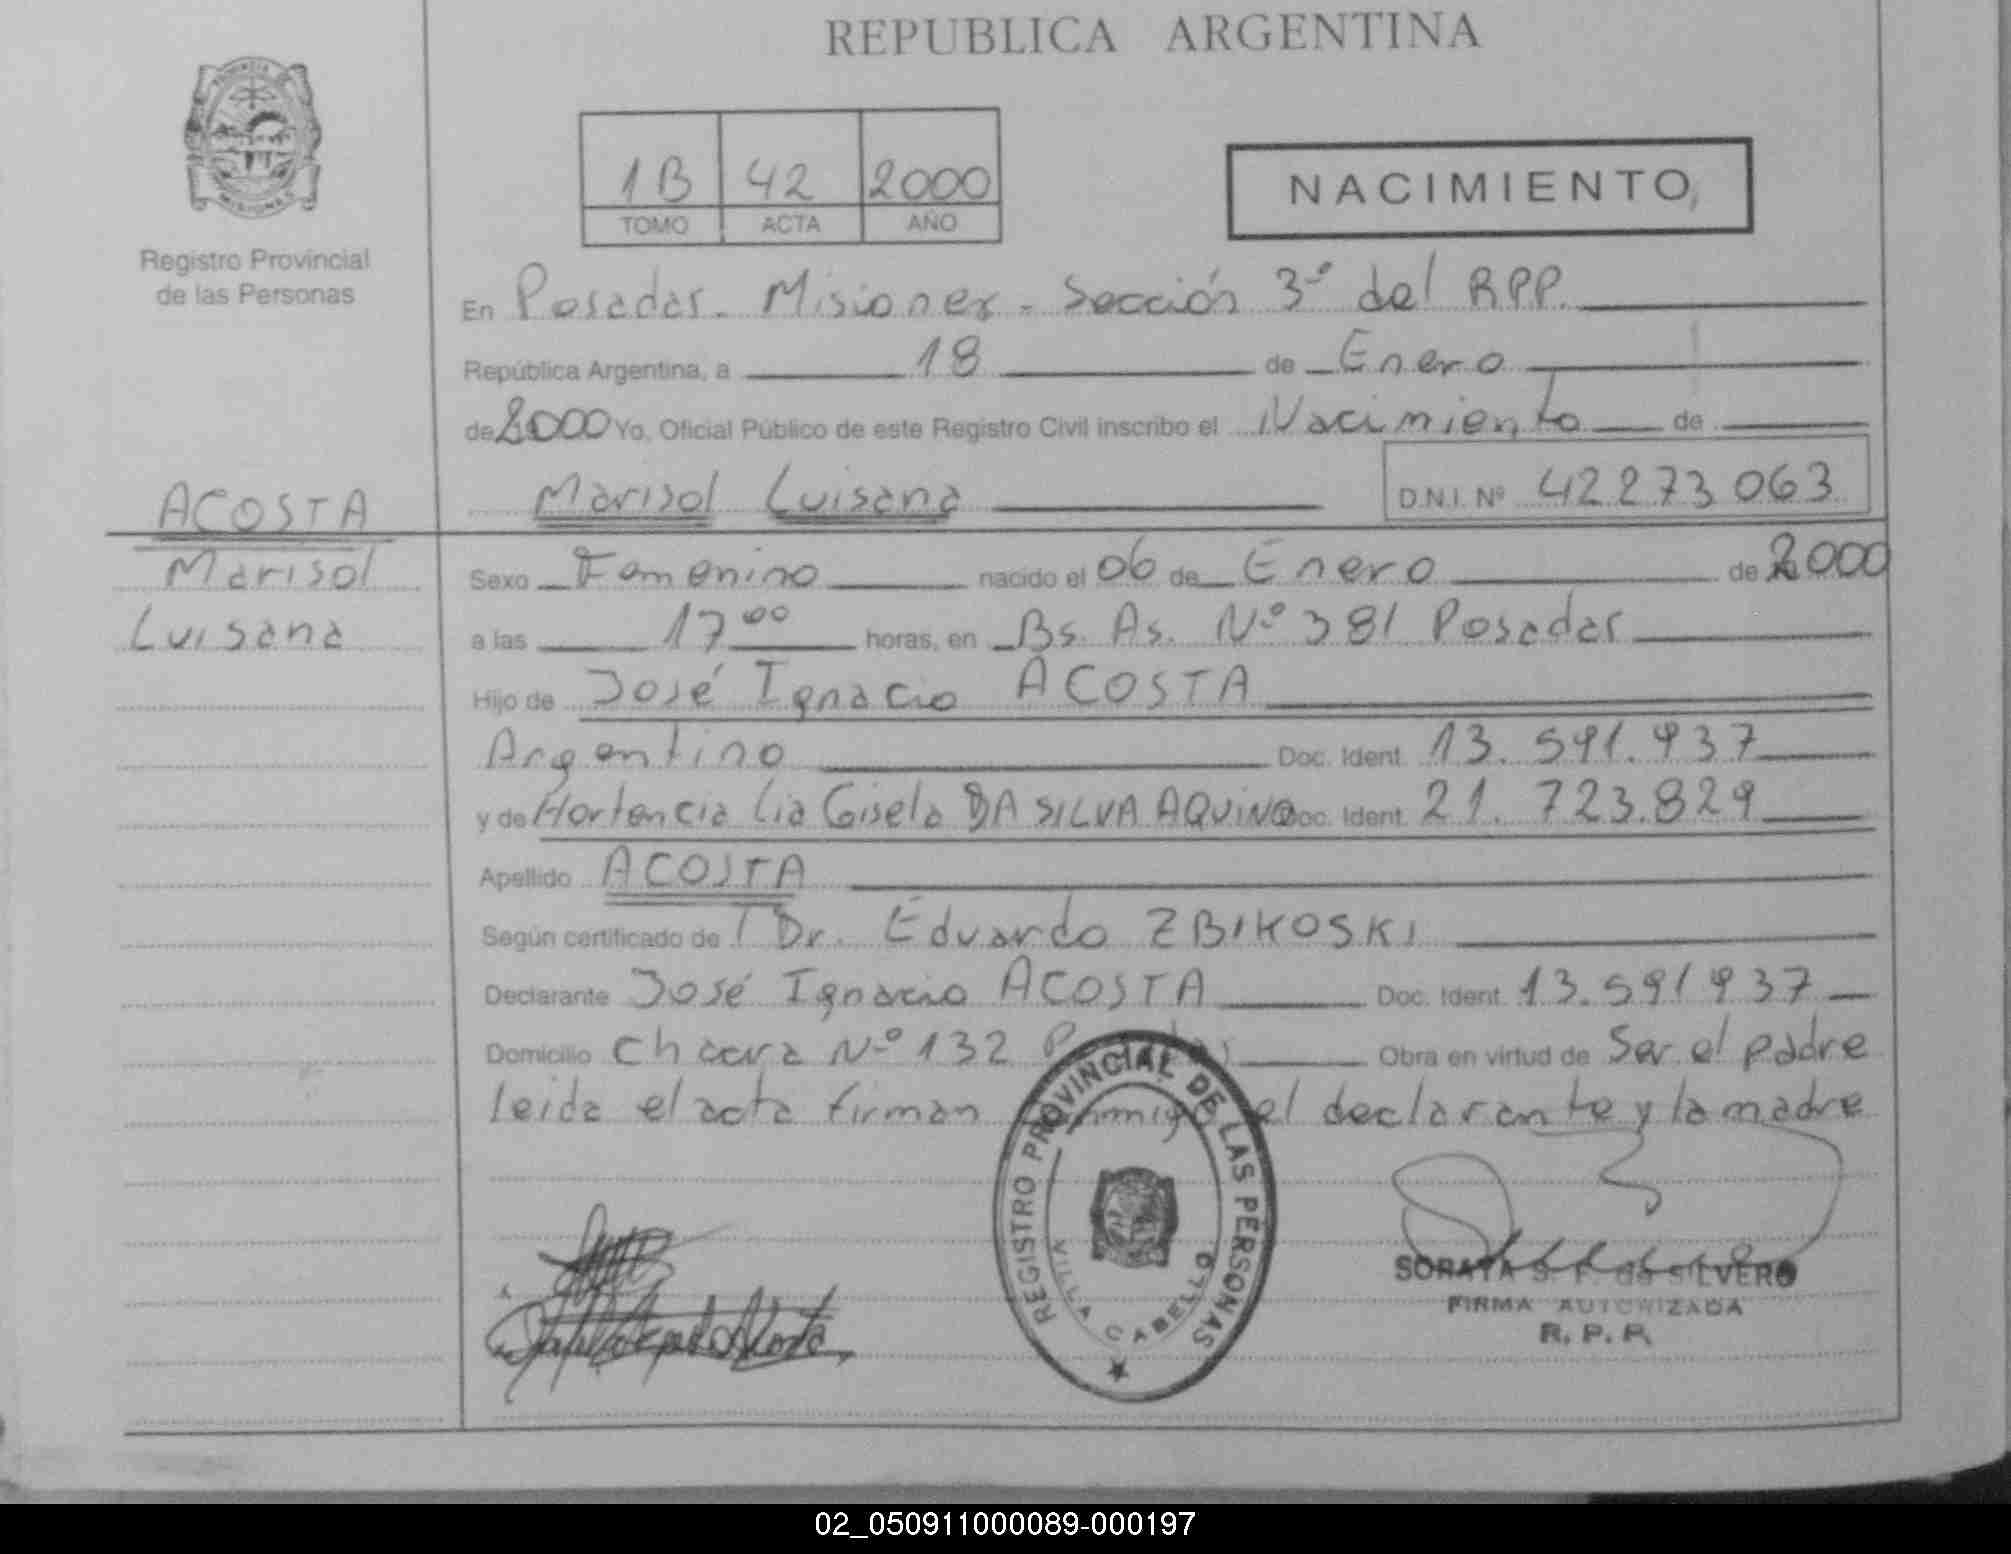 REPUBLICA ARGENTINA
PROVINCIA DE MISIONES
Registro Provincial
de las Personas
1B 42 2000
TOMO ACTA AÑO
NACIMIENTO
En Posadas. Misiones - Sección 3ª del RPP.
República Argentina, a 18 de Enero
de 2000 Yo, Oficial Público de este Registro Civil inscribo el Nacimiento de
Marisol Luisana D.N.I. Nº 42273063
ACOSTA
Marisol
Luisana
Sexo Femenino nacido el 06 de Enero de 2000
a las 17 00 horas, en Bs. As. Nº 381 Posadas
Hijo de José Ignacio ACOSTA
Argentino Doc. Ident. 13.591.937
y de Hortencia Lia Gisela DA SILVA AQUINO Doc. Ident. 21.723.829
Apellido ACOSTA
Según certificado de Dr. Eduardo ZBIKOSKI
Declarante José Ignacio ACOSTA Doc. Ident. 13.591937
Domicilio Chacra Nº 132 Obra en virtud de Ser el padre
leida el acta firman conmigo el declarante y la madre
REGISTRO PROVINCIAL DE LAS PERSONAS
VILLA CABELLO
SORAYA S. F. de SILVERO
FIRMA AUTORIZADA
R. P. P.
02_050911000089-000197